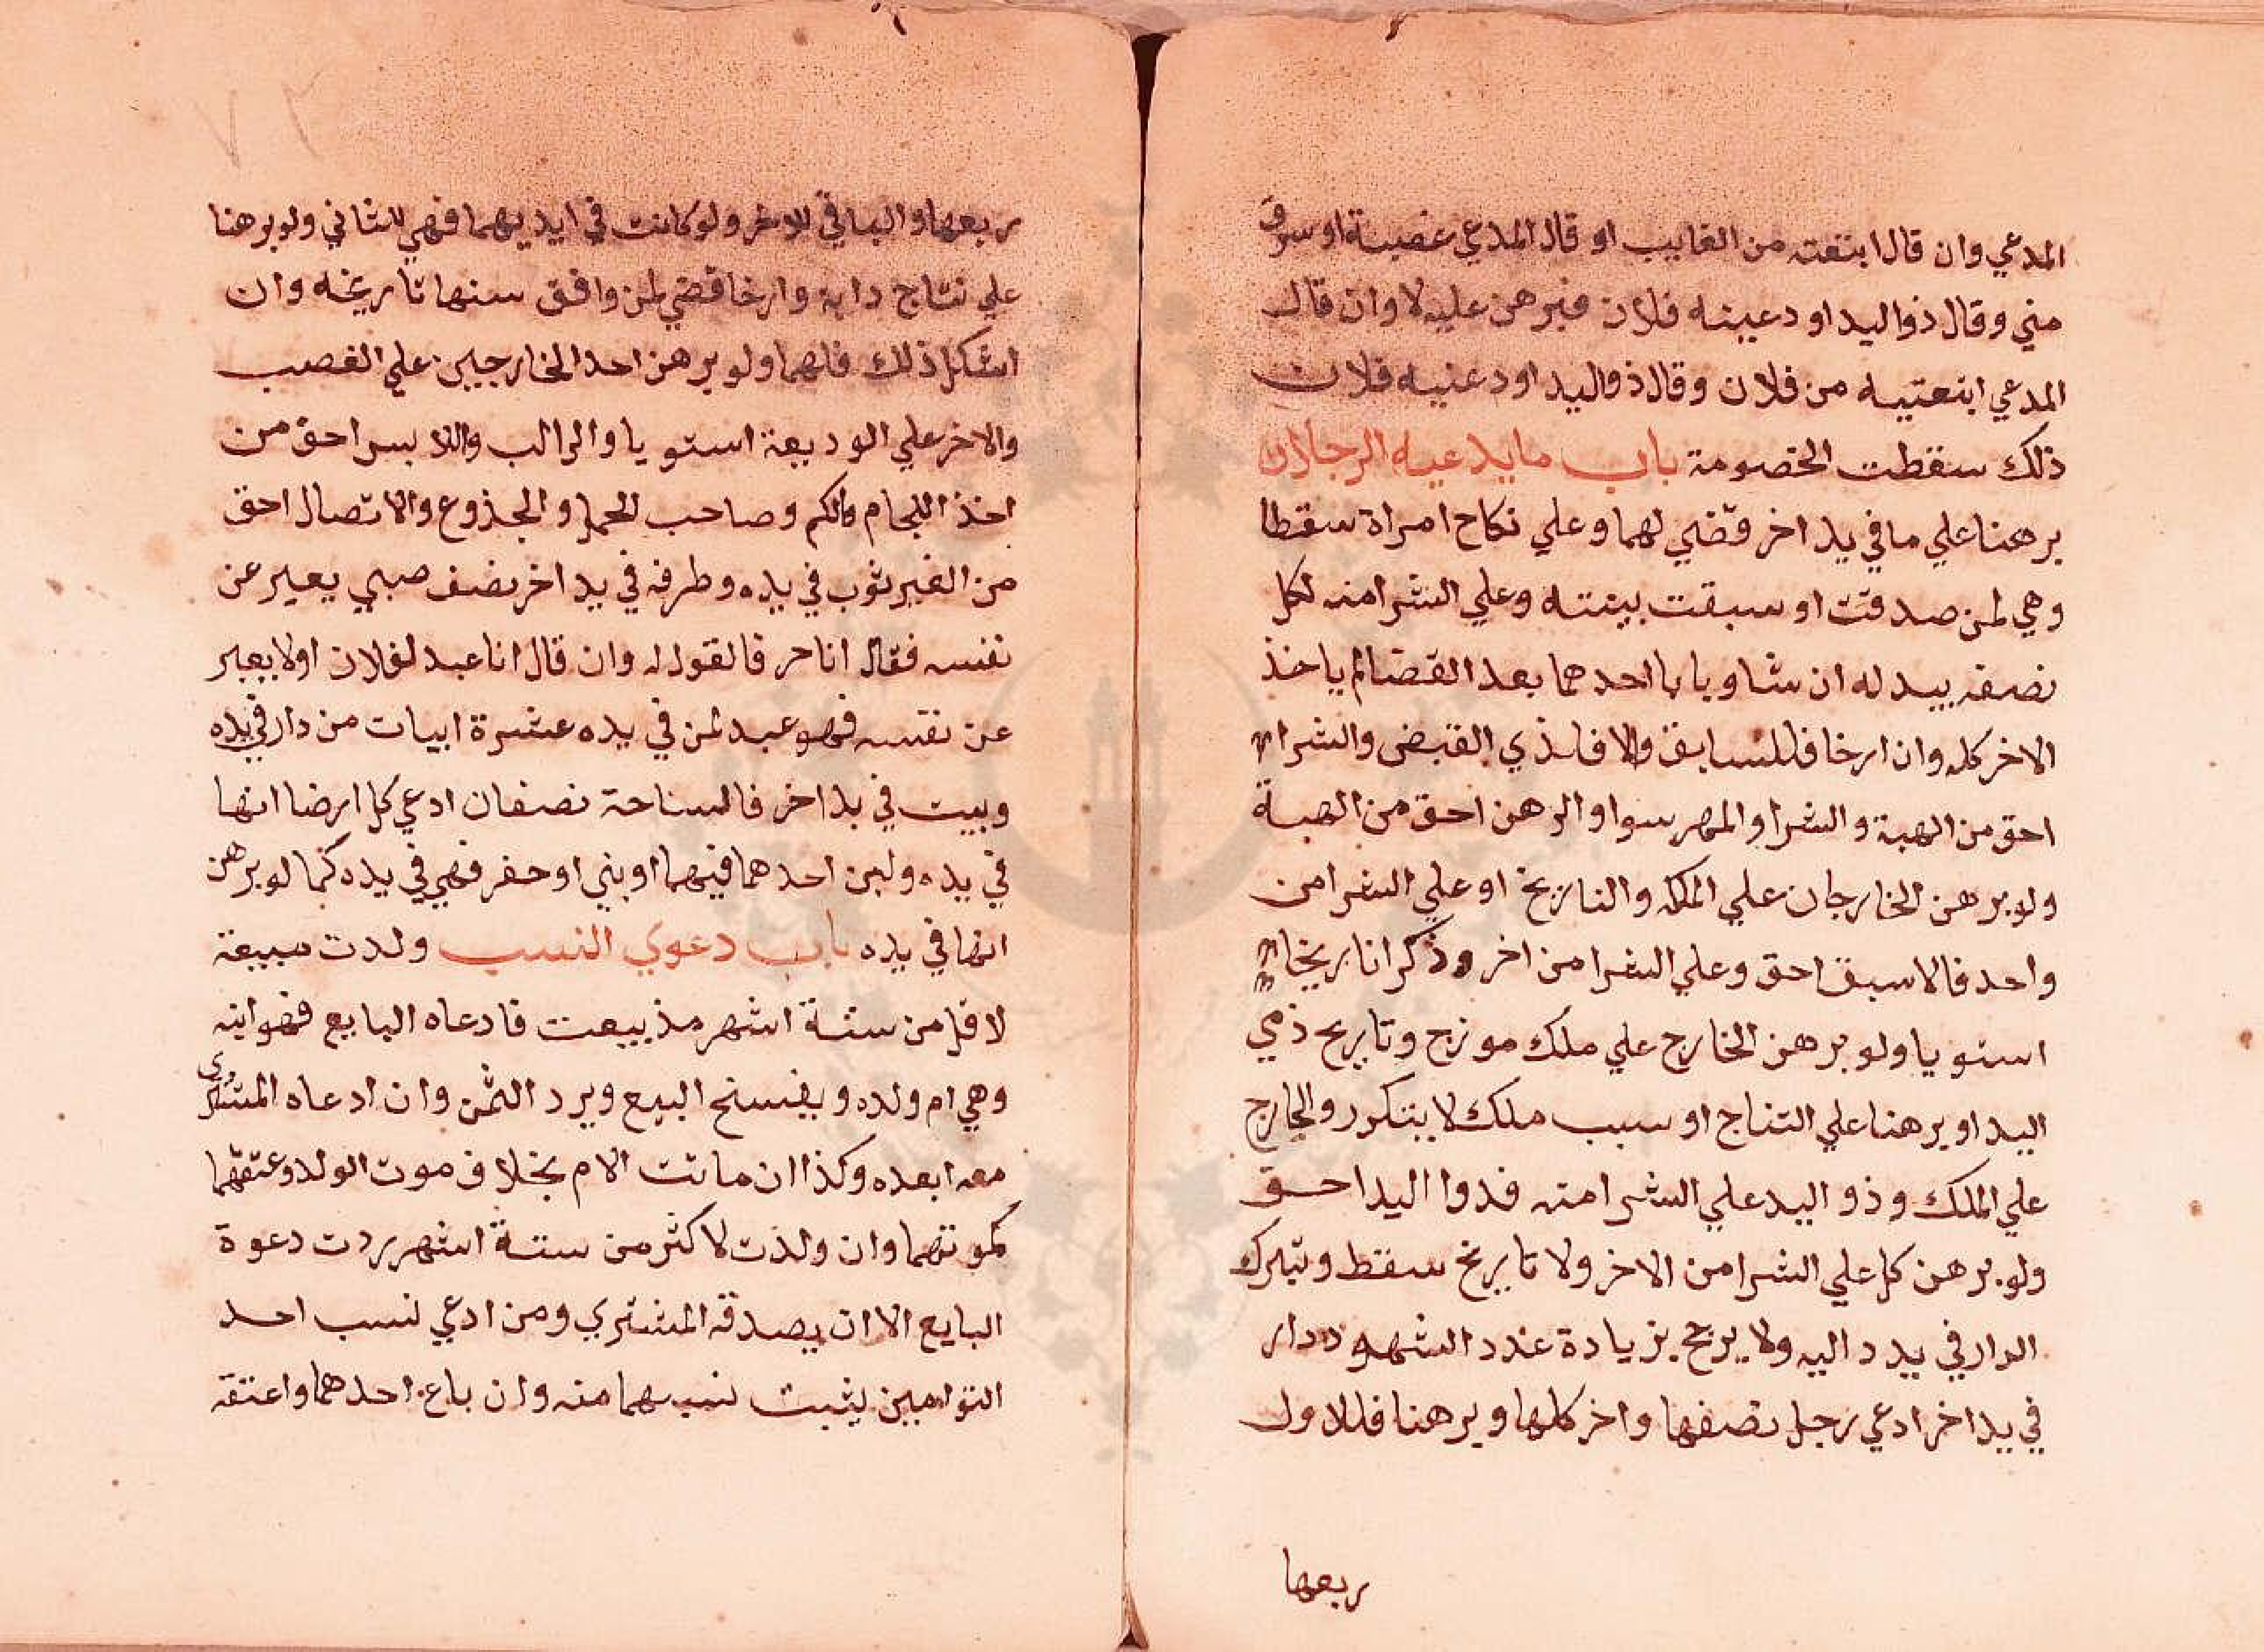 المدعي وان قال ابتعته من الغايب او قال المدعي غصبته او سرق
مني وقال ذو اليد اودعينه فلان فبرهن عليه لا وان قال
المدعي ابتعتيه من فلان وقال ذو اليد اودعنيه فلان
ذلك سقطت الخصومة باب ما يدعيه الرجلان
برهنا علي ما في يد اخر قضي لهما وعلي نكاح امراة سقطا
وهي لمن صدقت او سبقت بينته وعلي الشرا منه لكل
نصفه ببدله ان شا وبابا احدهما بعد القضا لم ياخذ
الاخر كله وان ارخا فللسابق والا فلذي القبض والشرا
احق من الهبة والشرا والمهر سوا والرهن احق من الهبة
ولو برهن الخارجان علي الملك والتاريخ او علي الشرا من
واحد فالاسبق احق وعلي الشرا من اخر وذكرا تاريخا
استويا ولو برهن الخارج علي ملك مورخ وتاريخ ذي
اليد او برهنا علي النتاج او سبب ملك لا يتكرر والخارج
علي الملك وذو اليد علي الشرا منه فذوا اليد احق
ولو برهن كل علي الشرا من الاخر ولا تاريخ سقط وتترك
الدار في يد ذ اليه ولا يرجح بزيادة عدد الشهود دار
في يد اخر ادعي رجل نصفها واخر كلها وبرهنا فللاول
ربعها
ربعها والباقي للاخر ولو كانت في ايديهما فهي للثاني ولو برهنا
علي نتاج دابة وارخا قضي لمن وافق سنها تاريخه وان
اشكل ذلك فلهما ولو برهن احد الخارجين علي الغصب
والاخر علي الوديعة استويا والراكب واللابس احق من
اخذ اللجام والكم وصاحب الحمل والجذوع والاتصال احق
من الغير ثوب في يده وطرفه في يد اخر نصف صبي يعبر عن
نفسه فقال انا حر فالقول له وان قال انا عبد لفلان اولا يعبر
عن نفسه فهو عبد لمن في يده عشرة ابيات من دار في يده
وبيت في يد اخر فالساحة نصفان ادعي كل ارضا انها
في يده ولبن احدهما فيهما او بني او حفر فهي في يده كما لو برهن
انها في يده باب دعوي النسب ولدت مبيعة
لاقل من ستة اشهر مذ بيعت فادعاه البايع فهو ابنه
وهي ام ولده ويفسخ البيع ويرد الثمن وان ادعاه المشتري
معه ابعده وكذا ان ماتت الام بخلاف موت الولد وعتقهما
كموتهما وان ولدت لاكثر من ستة اشهر ردت دعوة
البايع الا ان يصدقه المشتري ومن ادعي نسب احد
التوامين يثبت نسبهما منه وان باع احدهما واعتقه